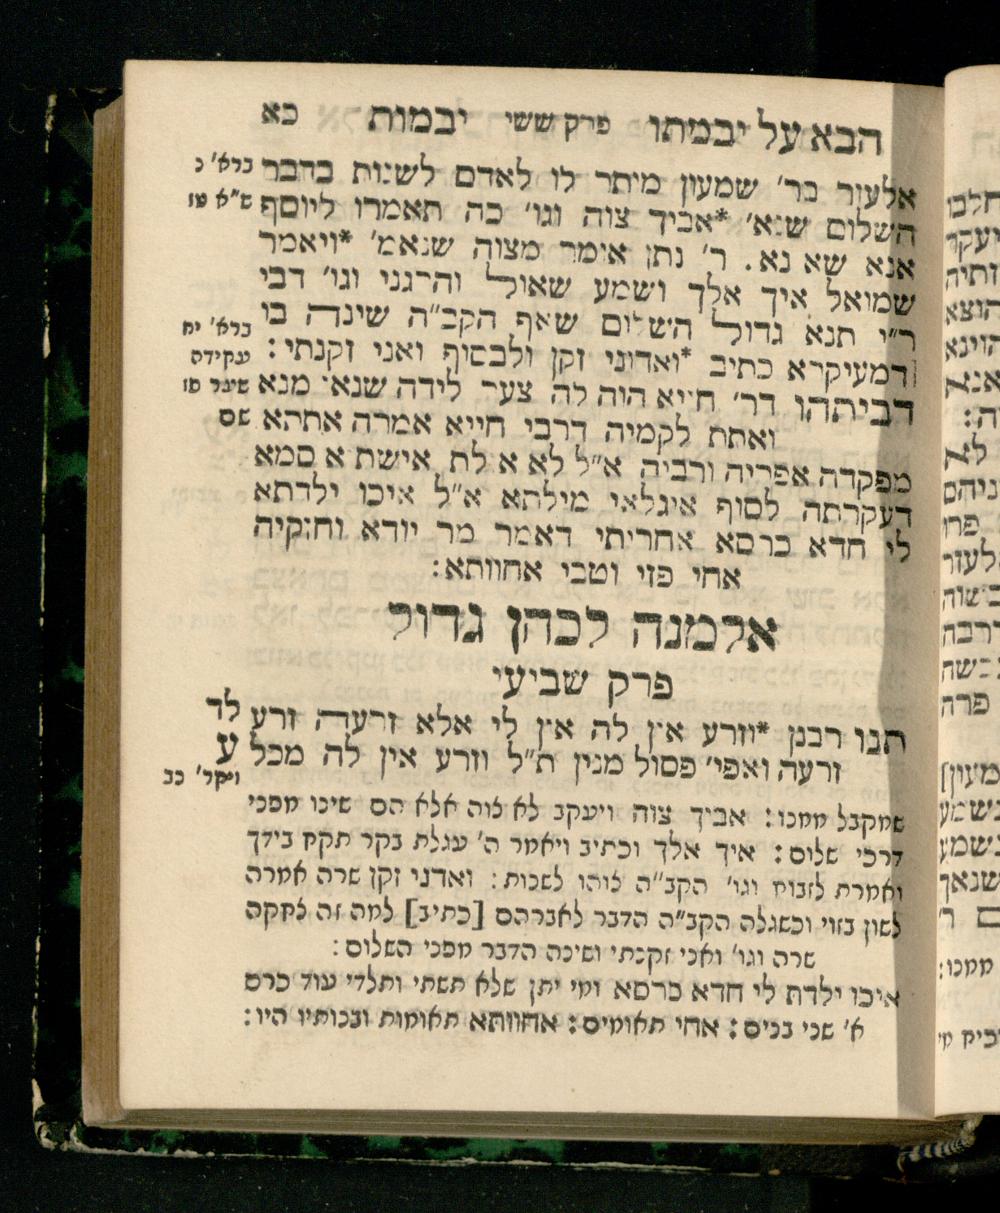 הבא על יבמתו פרק ששי יבמות כא
אלעזר בר׳ שמעון מיתר לו לאדם לשנות בדבר ברא׳ נ
השלום שנא׳ *אביך צוה וגו׳ כה תאמרו ליוסף ש״א טז
אנא שא נא. ר׳ נתן אימר מצוה שנאמ׳ *ויאמר
שמואל איך אלך ושמע שאול והרגני וגו׳ דבי
ר״י תנא גדול השלום שאף הקב״ה שינה בו ברא׳ יח
דמעיקרא כתיב *ואדוני זקן ולבסוף ואני זקנתי: עקידה
דביתהו דר׳ חייא הוה לה צער לידה שנא׳ מנא שער סו
ואתת לקמיה דרבי חייא אמרה אתהא שם
מפקדה אפריה ורביה א״ל לא אזלת אישתא סמא
דעקרתה לסוף איגלאי מילתא א״ל איכו ילדתא
לי חדא כרסא אחריתי דאמר מר יודא וחזקיה
אחי פזי וטבי אחוותא:
אלמנה לכהן גדול
פרק שביעי
תנו רבנן *וזרע אין לה אין לי אלא זרעה זרע לד
זרעה ואפי׳ פסול מנין ת״ל וזרע אין לה מכל ע
ויקר׳ כב
שמקבל ממנו: אביך צוה ויעקב לא צוה אלא הם שינו מפני
דרכי שלום: איך אלך וכתיב ויאמר ה׳ עגלת בקר תקח בידך
ואמרת לזבוח וגו׳ הקב״ה צוהו לשנות: ואדני זקן שרה אמרה
לשון בזוי וכשגלה הקב״ה הדבר לאברהם [כתיב] למה זה צחקה
שרה וגו׳ ואני זקנתי ושינה הדבר מפני השלום:
איכו ילדת לי חדא כרסא ומי יתן שלא תשתי ותלדי עוד כרס
א׳ שני בנים: אחי תאומים: אחוותא תאומות ובנותיו היו: